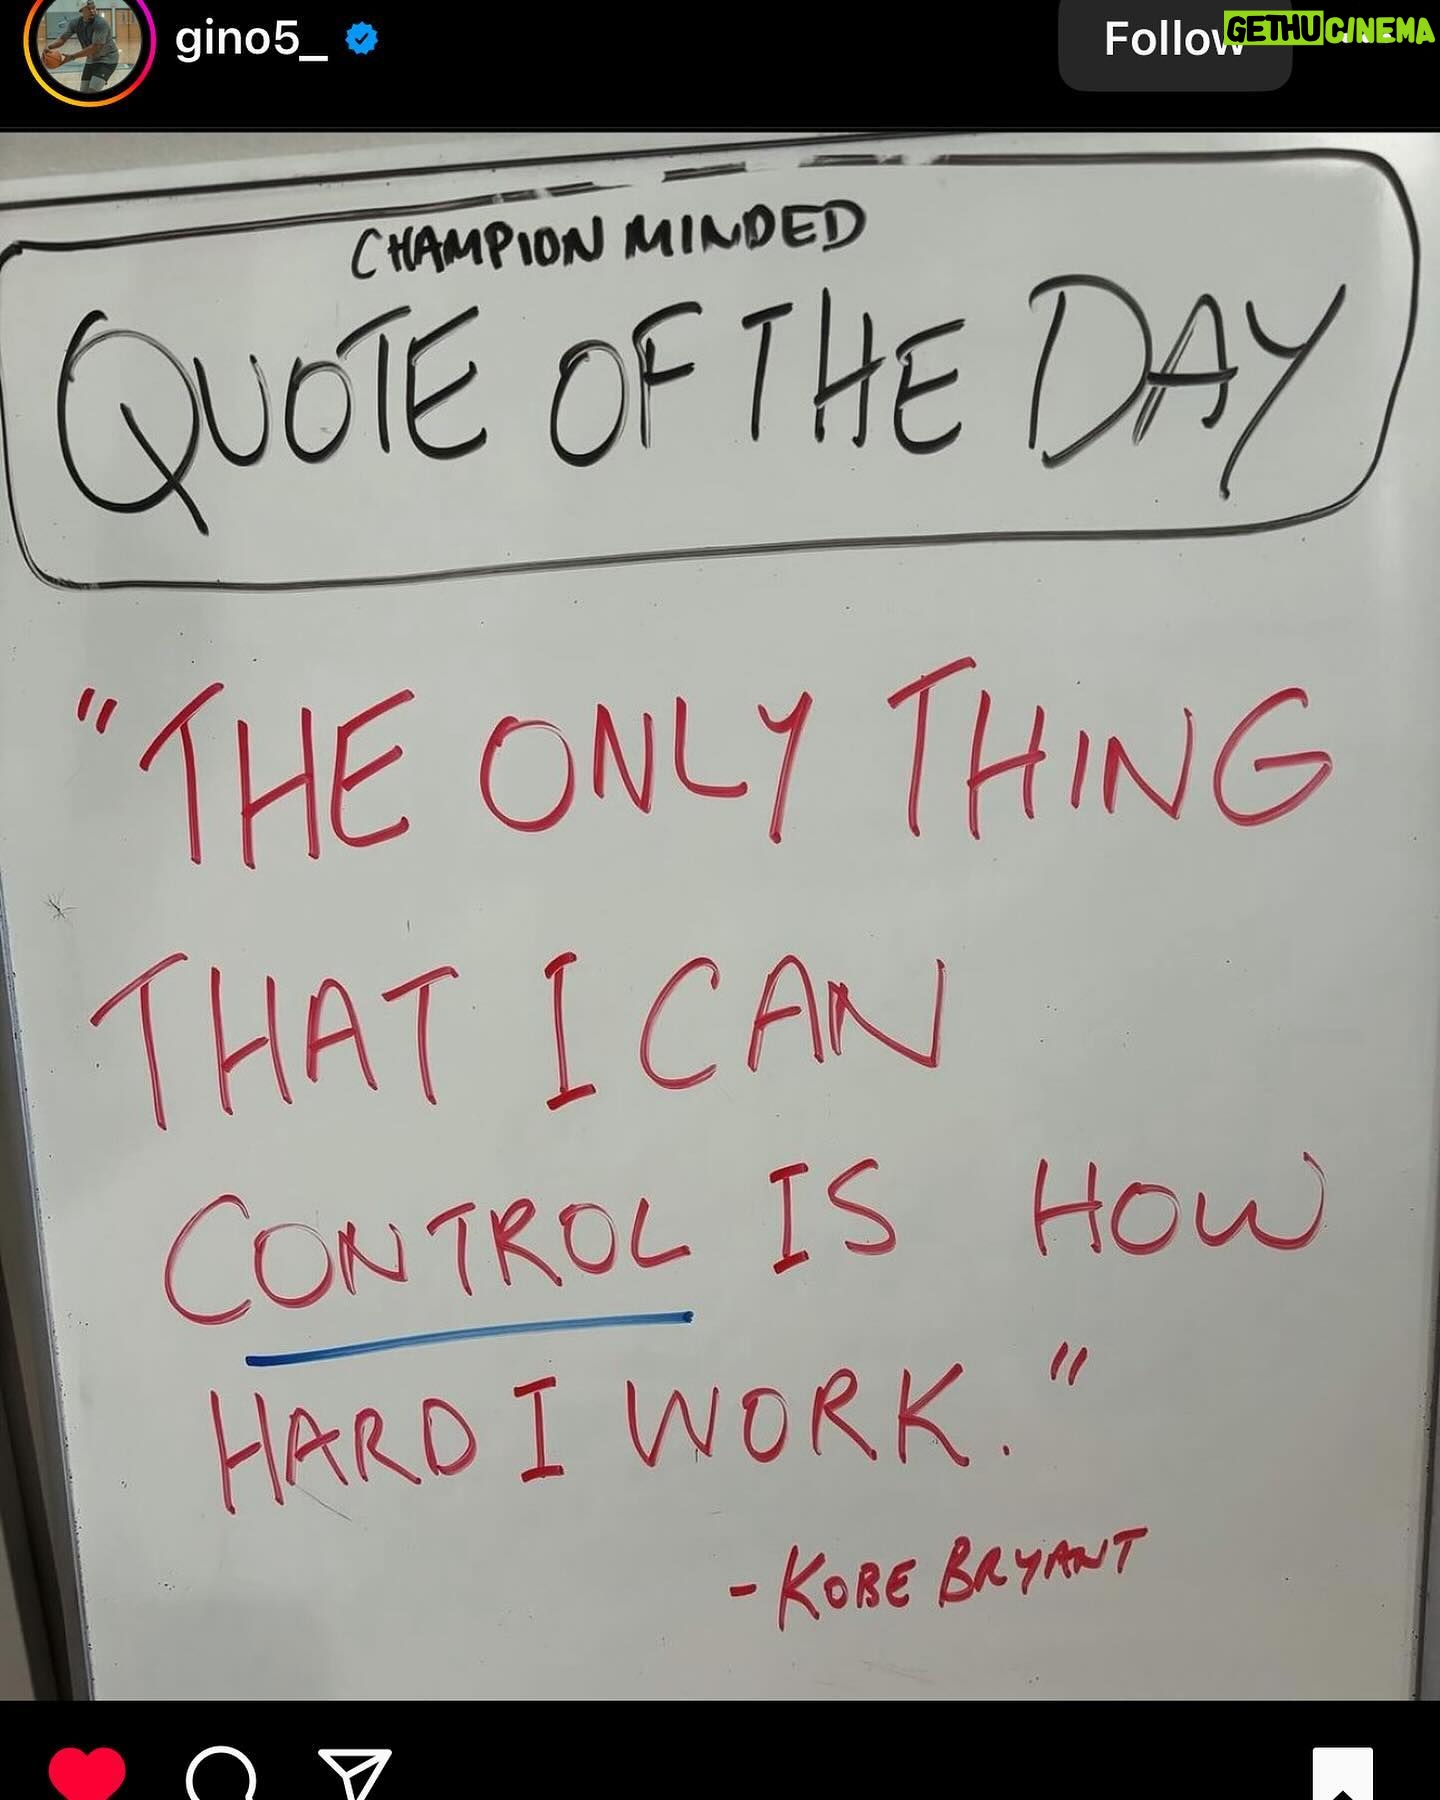 gino5_
Follow
GETHUCINEMA
CHAMPION MINDED
QUOTE OF THE DAY
"THE ONLY THING
THAT I CAN
CONTROL IS HOW
HARD I WORK."
- KOBE BRYANT